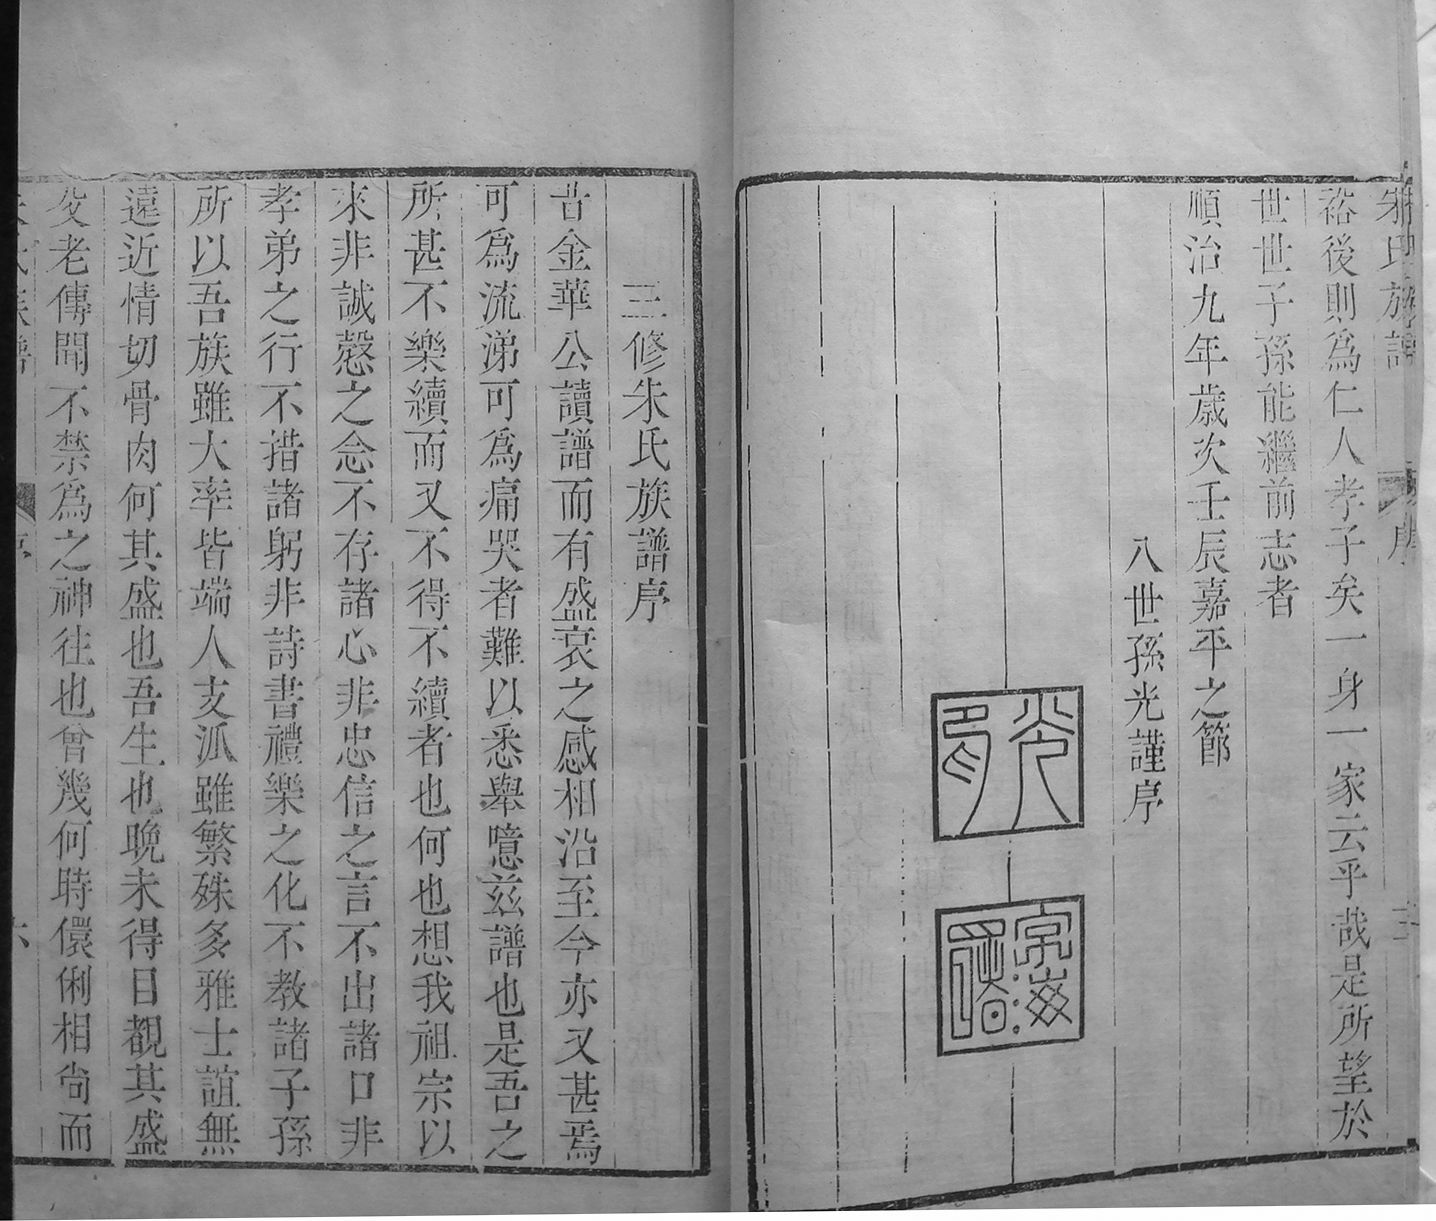 朱氏族譜 序
裕後則為仁人孝子矣一身一家云乎哉是所望於
世世子孫能繼前志者
順治九年歲次壬辰嘉平之節
八世孫光謹序
三修朱氏族譜序
昔金華公讀譜而有盛衰之感相沿至今亦又甚焉
可為流涕可為痛哭者難以悉舉噫茲譜也是吾之
所甚不樂續而又不得不續者也何也想我祖宗以
來非誠慤之念不存諸心非忠信之言不出諸口非
孝弟之行不措諸躬非詩書禮樂之化不教諸子孫
所以吾族雖大率皆端人支派雖繁殊多雅士誼無
遠近情切骨肉何其盛也吾生也晚未得目覩其盛
父老傳聞不禁為之神往也曾幾何時儇俐相尚而
朱氏族譜 序 六